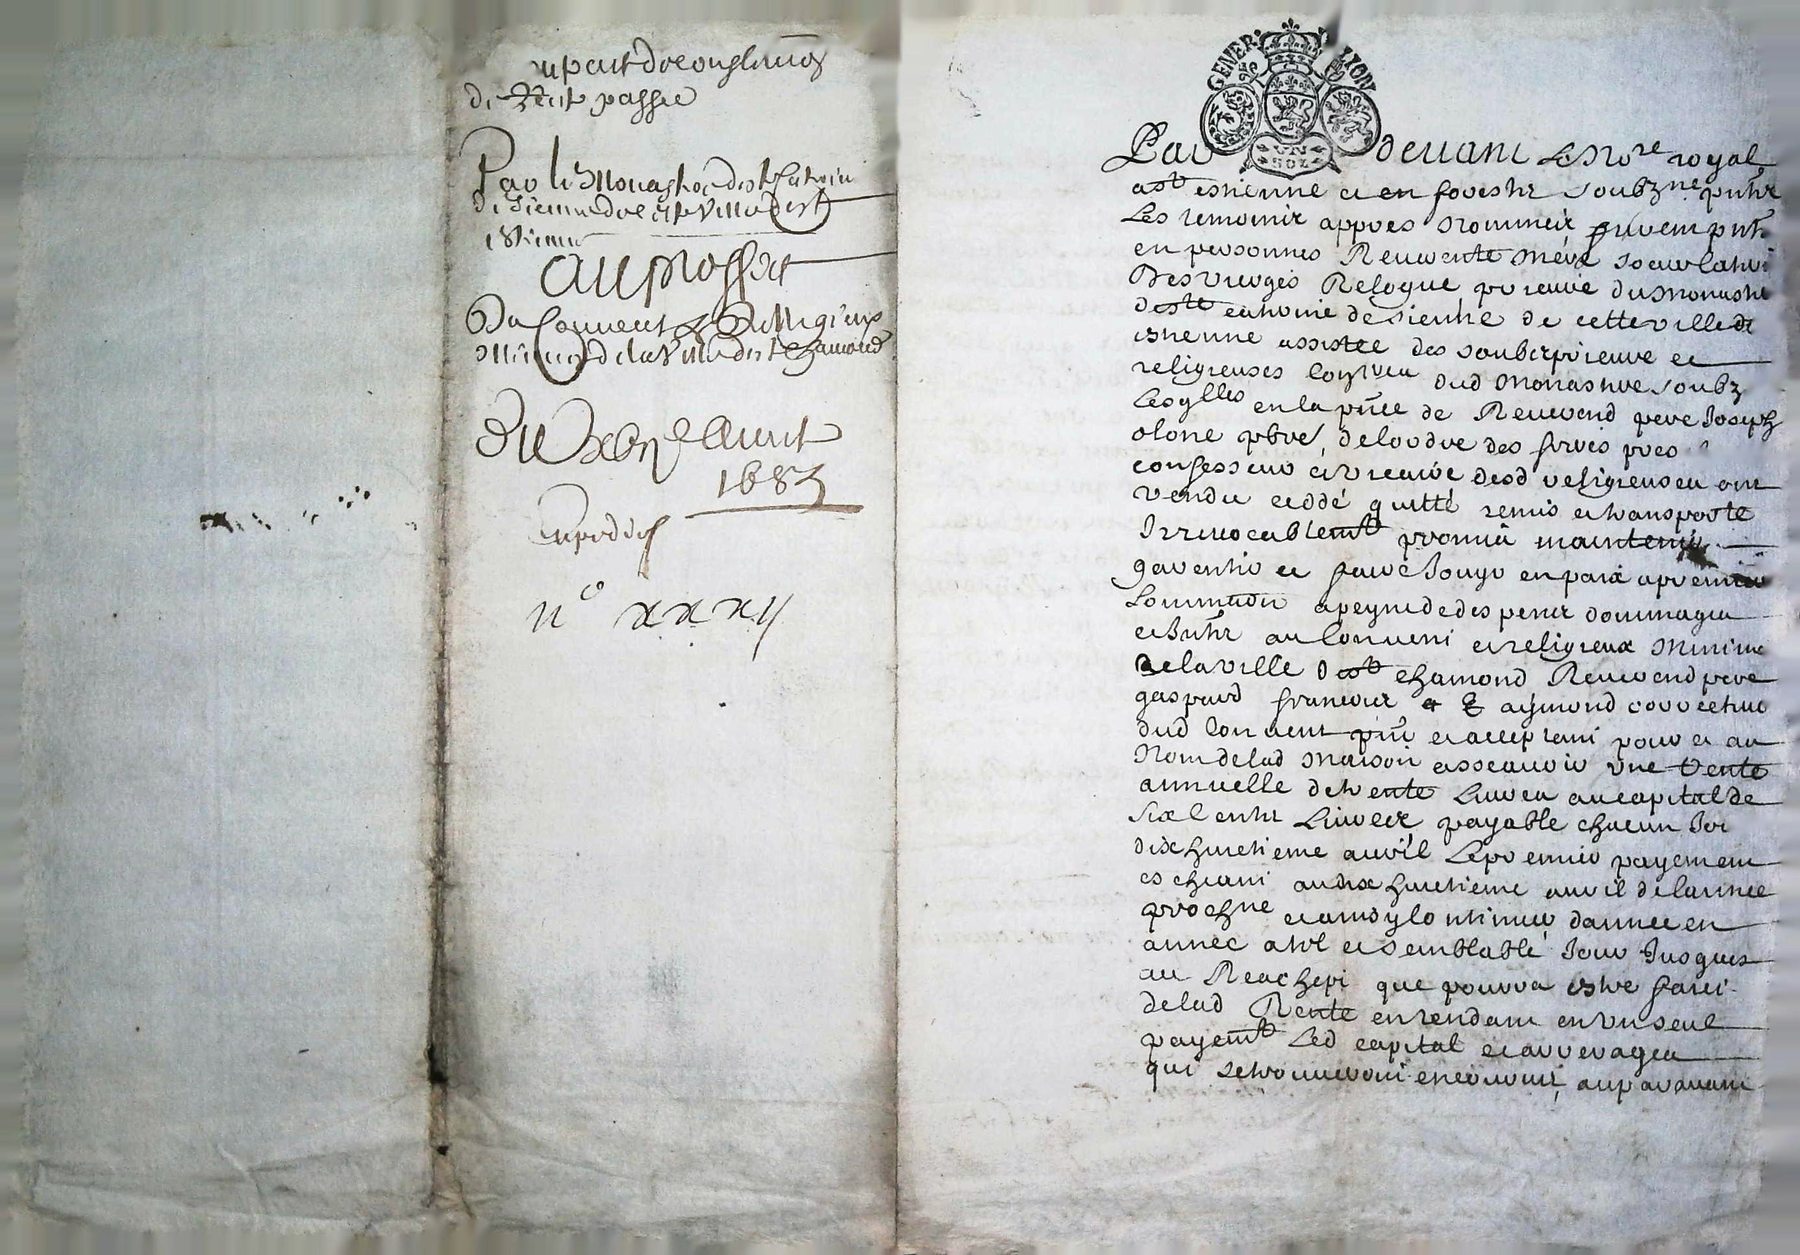 de Rente passee
Par le Monastere de ste Catherine
de Sienne de cette Ville de st
estienne
Au proffit
Du Couvent & Relligieux
Minimes de la Ville de st Chamond
Du Xbre Avril
1683
Expedié
n° xxxij
GENER LYON
UN
SOL
Par devant Le Nore royal
a st estienne et en forestz soubzne putz
Les temoinz appres nommez furent putz
en personnes Reverente Mere soeur Catherine
Des vierges Relogue prieure du Monaste
de ste catherine de sienne de cette ville de st
estienne assistee des soubzprieure et
religieuses dud Monastere soubz
en la pnce de Reverend pere Joseph
olone pbre de lordre des freres
confesseur desd religieuses ont
vendu ceddé quitté remis et transporte
Irrevocablemt promis maintenir
garentir et faire Jouyr en paix a premiere
Sommation a peyne de despenz dommages
et Intz au Convent et religieux Minime
de la ville de st chamond Reverend pere
gaspard francois & aymond correcteur
dud Convent pnt et acceptant pour et au
Nom de lad Maison assavoir une Rente
annuelle de trente Livres au capital de
six Centz Livres payable chacun Jor
dix huictieme avril Le premier payement
escheant au dix huictieme avril de lannee
prochne et ainsy Continuer dannee en
annee a tel et semblable Jour Jusques
au Reachept que pourra estre faict
de lad Rente en rendant en un seul
payemt Led capital et arrerages
qui se trouveront encourus auparavant